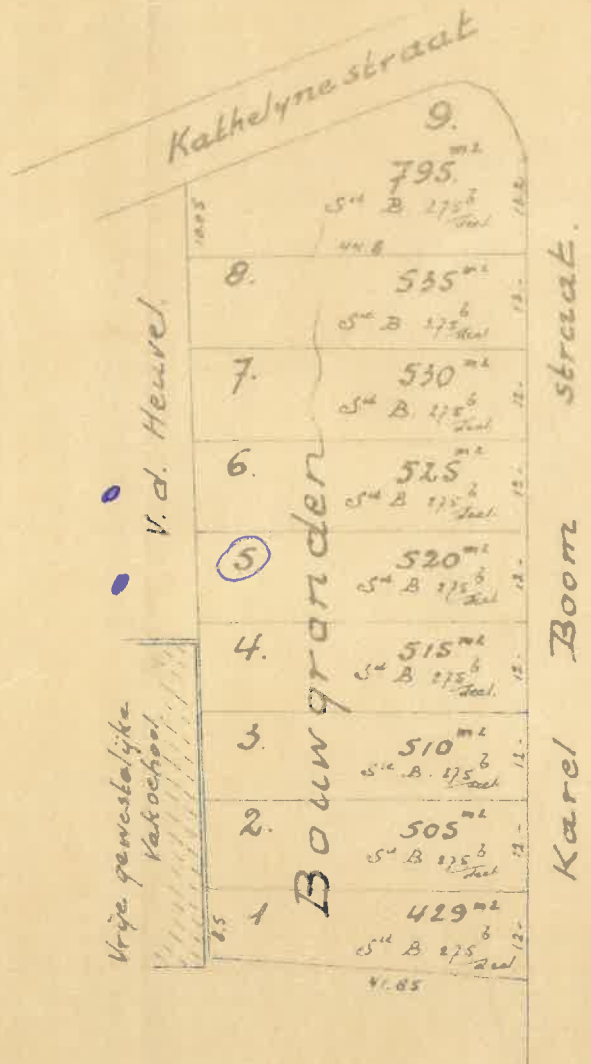 Kathelyne straat
9.
795 m2
Sie B 275 b
deel
18.05
13.2
44.8
8.
535 m2
Sie B 275 b
deel
12.-
7.
530 m2
Sie B 275 b
deel
12.-
6.
525 m2
Sie B 275 b
deel
12.-
5
520 m2
Sie B 275 b
deel
12.-
4.
515 m2
Sie B 275 b
deel
12.-
3.
510 m2
Sie B. 275 b
deel
12.-
2.
505 m2
Sie B 275 b
deel
12.-
1
429 m2
Sie B 275 b
deel
12.-
8.5
41.85
V. d. Heuvel.
Vrije gewestelijke
Vakschool
Bouwgronden
Karel Boom straat.